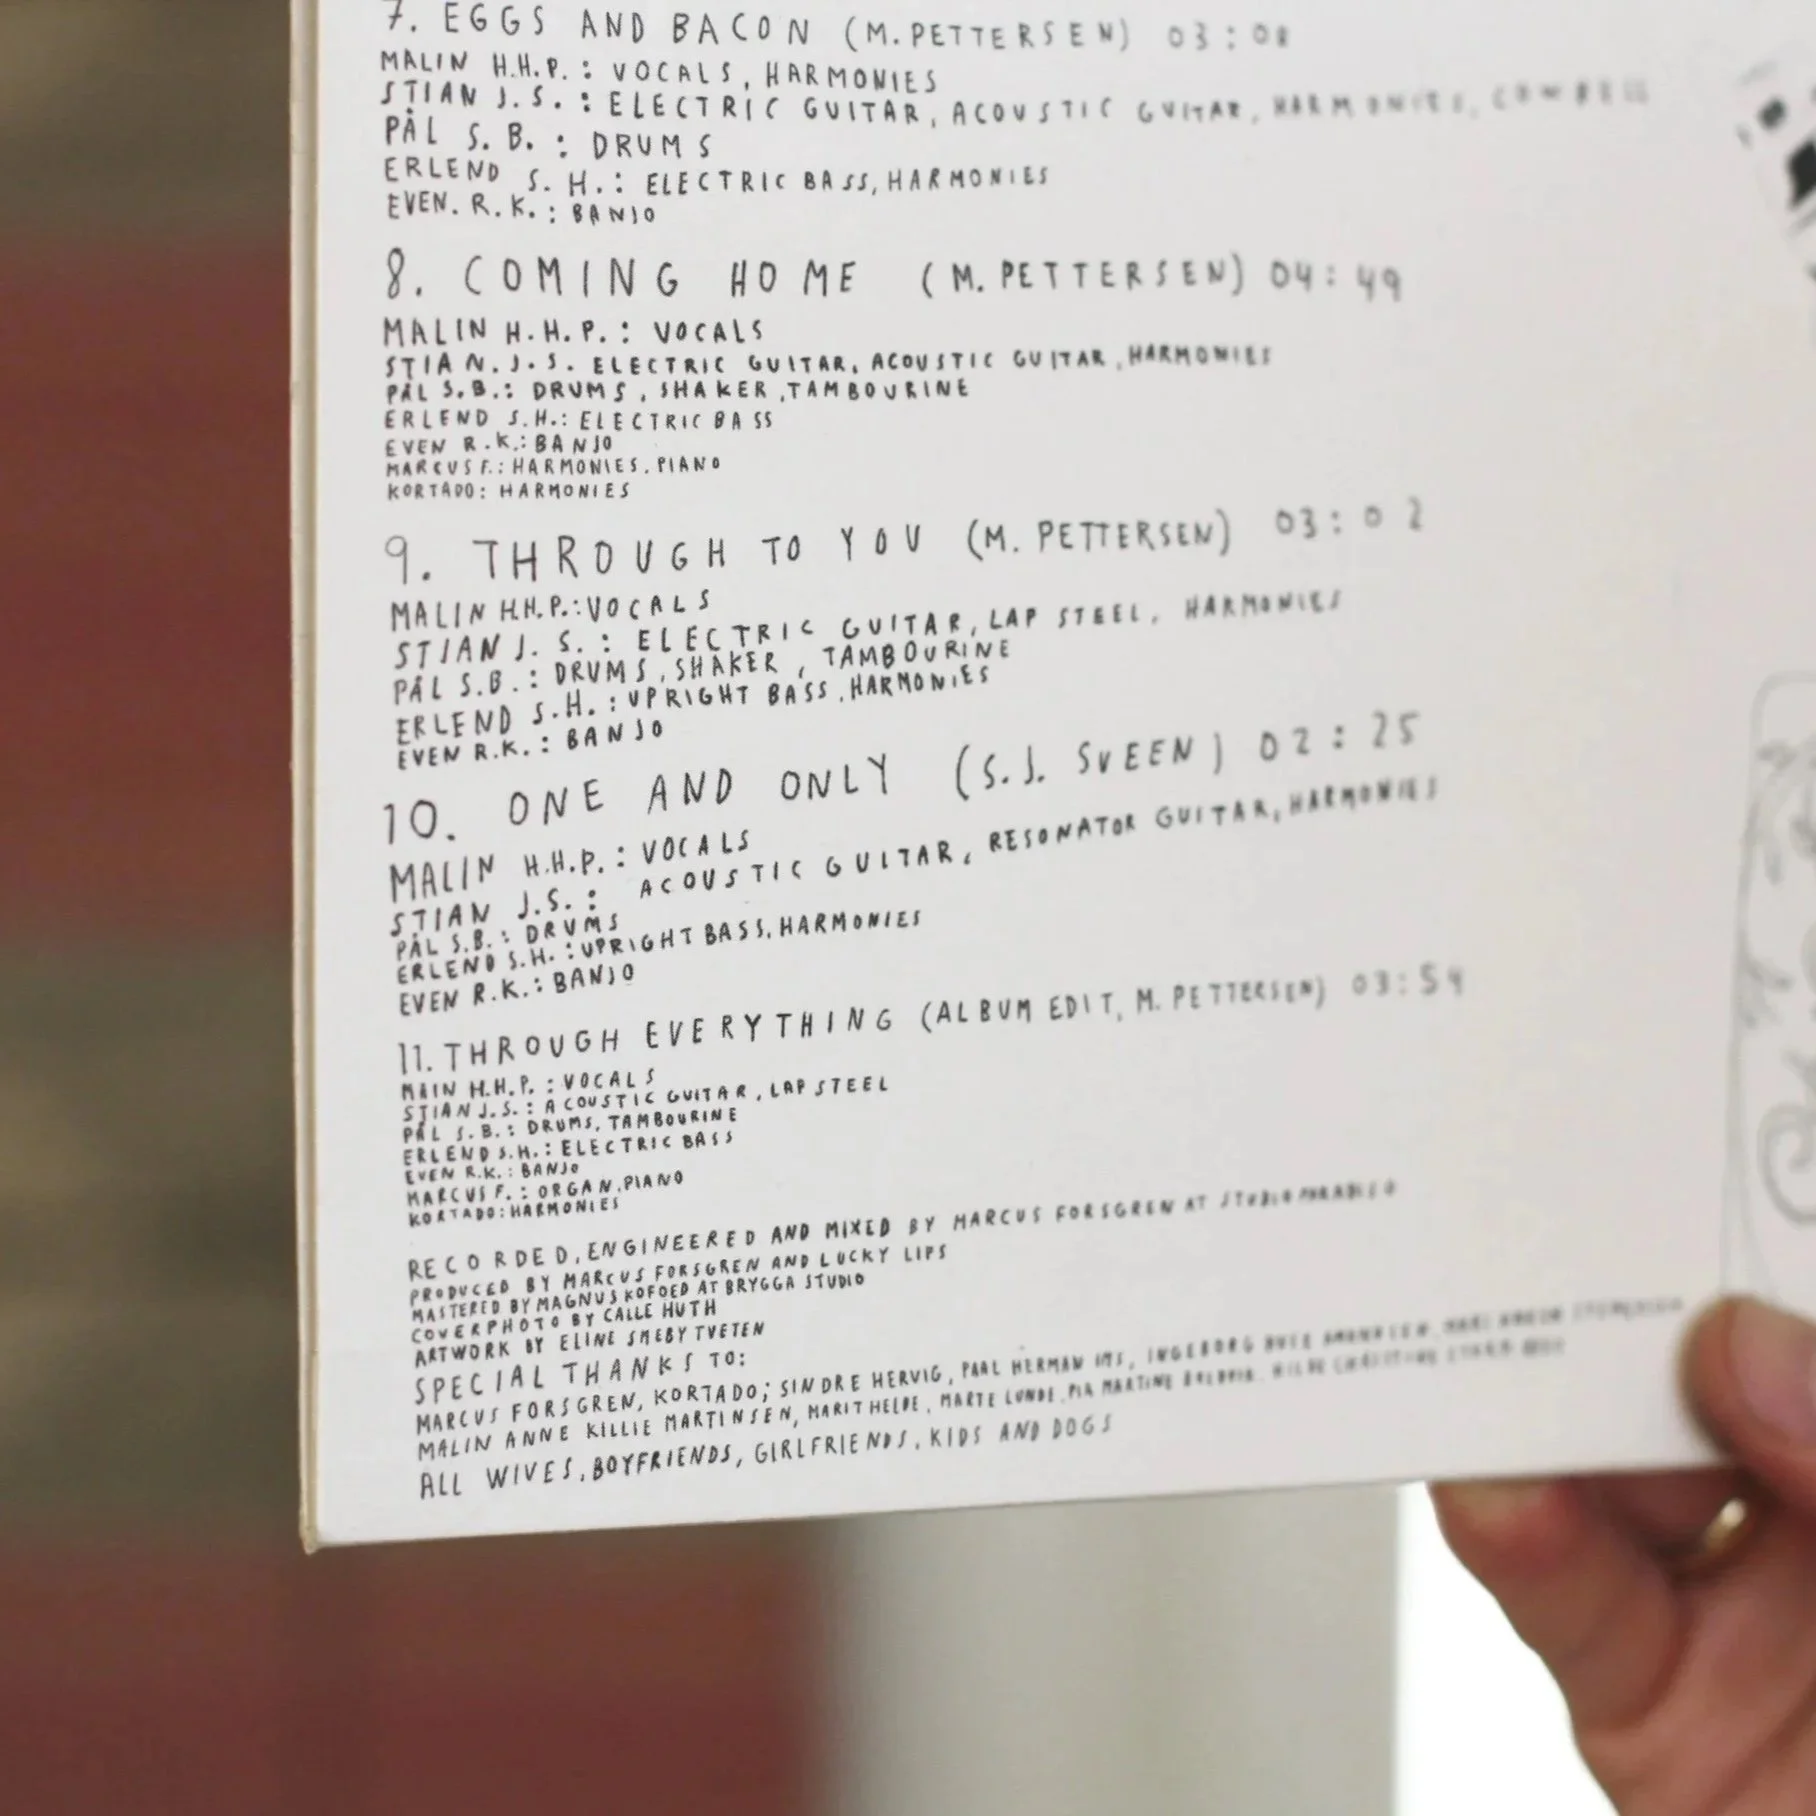 7. EGGS AND BACON (M. PETTERSEN) 03:08
MALIN H.H.P. : VOCALS, HARMONIES
STIAN J. S. : ELECTRIC GUITAR, ACOUSTIC GUITAR, HARMONIES, COWBELL
PÅL S. B. : DRUMS
ERLEND S. H. : ELECTRIC BASS, HARMONIES
EVEN. R. K. : BANJO
8. COMING HOME (M. PETTERSEN) 04:49
MALIN H.H.P. : VOCALS
STIAN. J. S. ELECTRIC GUITAR, ACOUSTIC GUITAR, HARMONIES
PÅL S.B.: DRUMS, SHAKER, TAMBOURINE
ERLEND S.H.: ELECTRIC BASS
EVEN R.K.: BANJO
MARCUS F.: HARMONIES, PIANO
KORTADO: HARMONIES
9. THROUGH TO YOU (M. PETTERSEN) 03:02
MALIN H.H.P.: VOCALS
STIAN J. S. : ELECTRIC GUITAR, LAP STEEL, HARMONIES
PÅL S.B. : DRUMS, SHAKER, TAMBOURINE
ERLEND S.H. : UPRIGHT BASS, HARMONIES
EVEN R.K. : BANJO
10. ONE AND ONLY (S. J. SVEEN) 02:25
MALIN H.H.P. : VOCALS
STIAN J.S. : ACOUSTIC GUITAR, RESONATOR GUITAR, HARMONIES
PÅL S.B. : DRUMS
ERLEND S.H. : UPRIGHT BASS, HARMONIES
EVEN R.K.: BANJO
11. THROUGH EVERYTHING (ALBUM EDIT, M. PETTERSEN) 03:54
MAIIN H.H.P. : VOCALS
STIAN J.S. : ACOUSTIC GUITAR, LAP STEEL
PÅL S.B. : DRUMS, TAMBOURINE
ERLEND S.H. : ELECTRIC BASS
EVEN R.K. : BANJO
MARCUS F. : ORGAN, PIANO
KORTADO: HARMONIES
RECORDED, ENGINEERED AND MIXED BY MARCUS FORSGREN AT STUDIO PARADISO
PRODUCED BY MARCUS FORSGREN AND LUCKY LIPS
MASTERED BY MAGNUS KOFOED AT BRYGGA STUDIO
COVERPHOTO BY CALLE HUTH
ARTWORK BY ELINE SMEBY TVETEN
SPECIAL THANKS TO:
MARCUS FORSGREN, KORTADO; SINDRE HERVIG, PAAL HERMAN IMS, INGEBORG
MALIN ANNE KILLIE MARTINSEN, MARIT HELDE, MARTE LUNDE, PIA MARTINE HILDE CHRISTINE
ALL WIVES, BOYFRIENDS, GIRLFRIENDS, KIDS AND DOGS